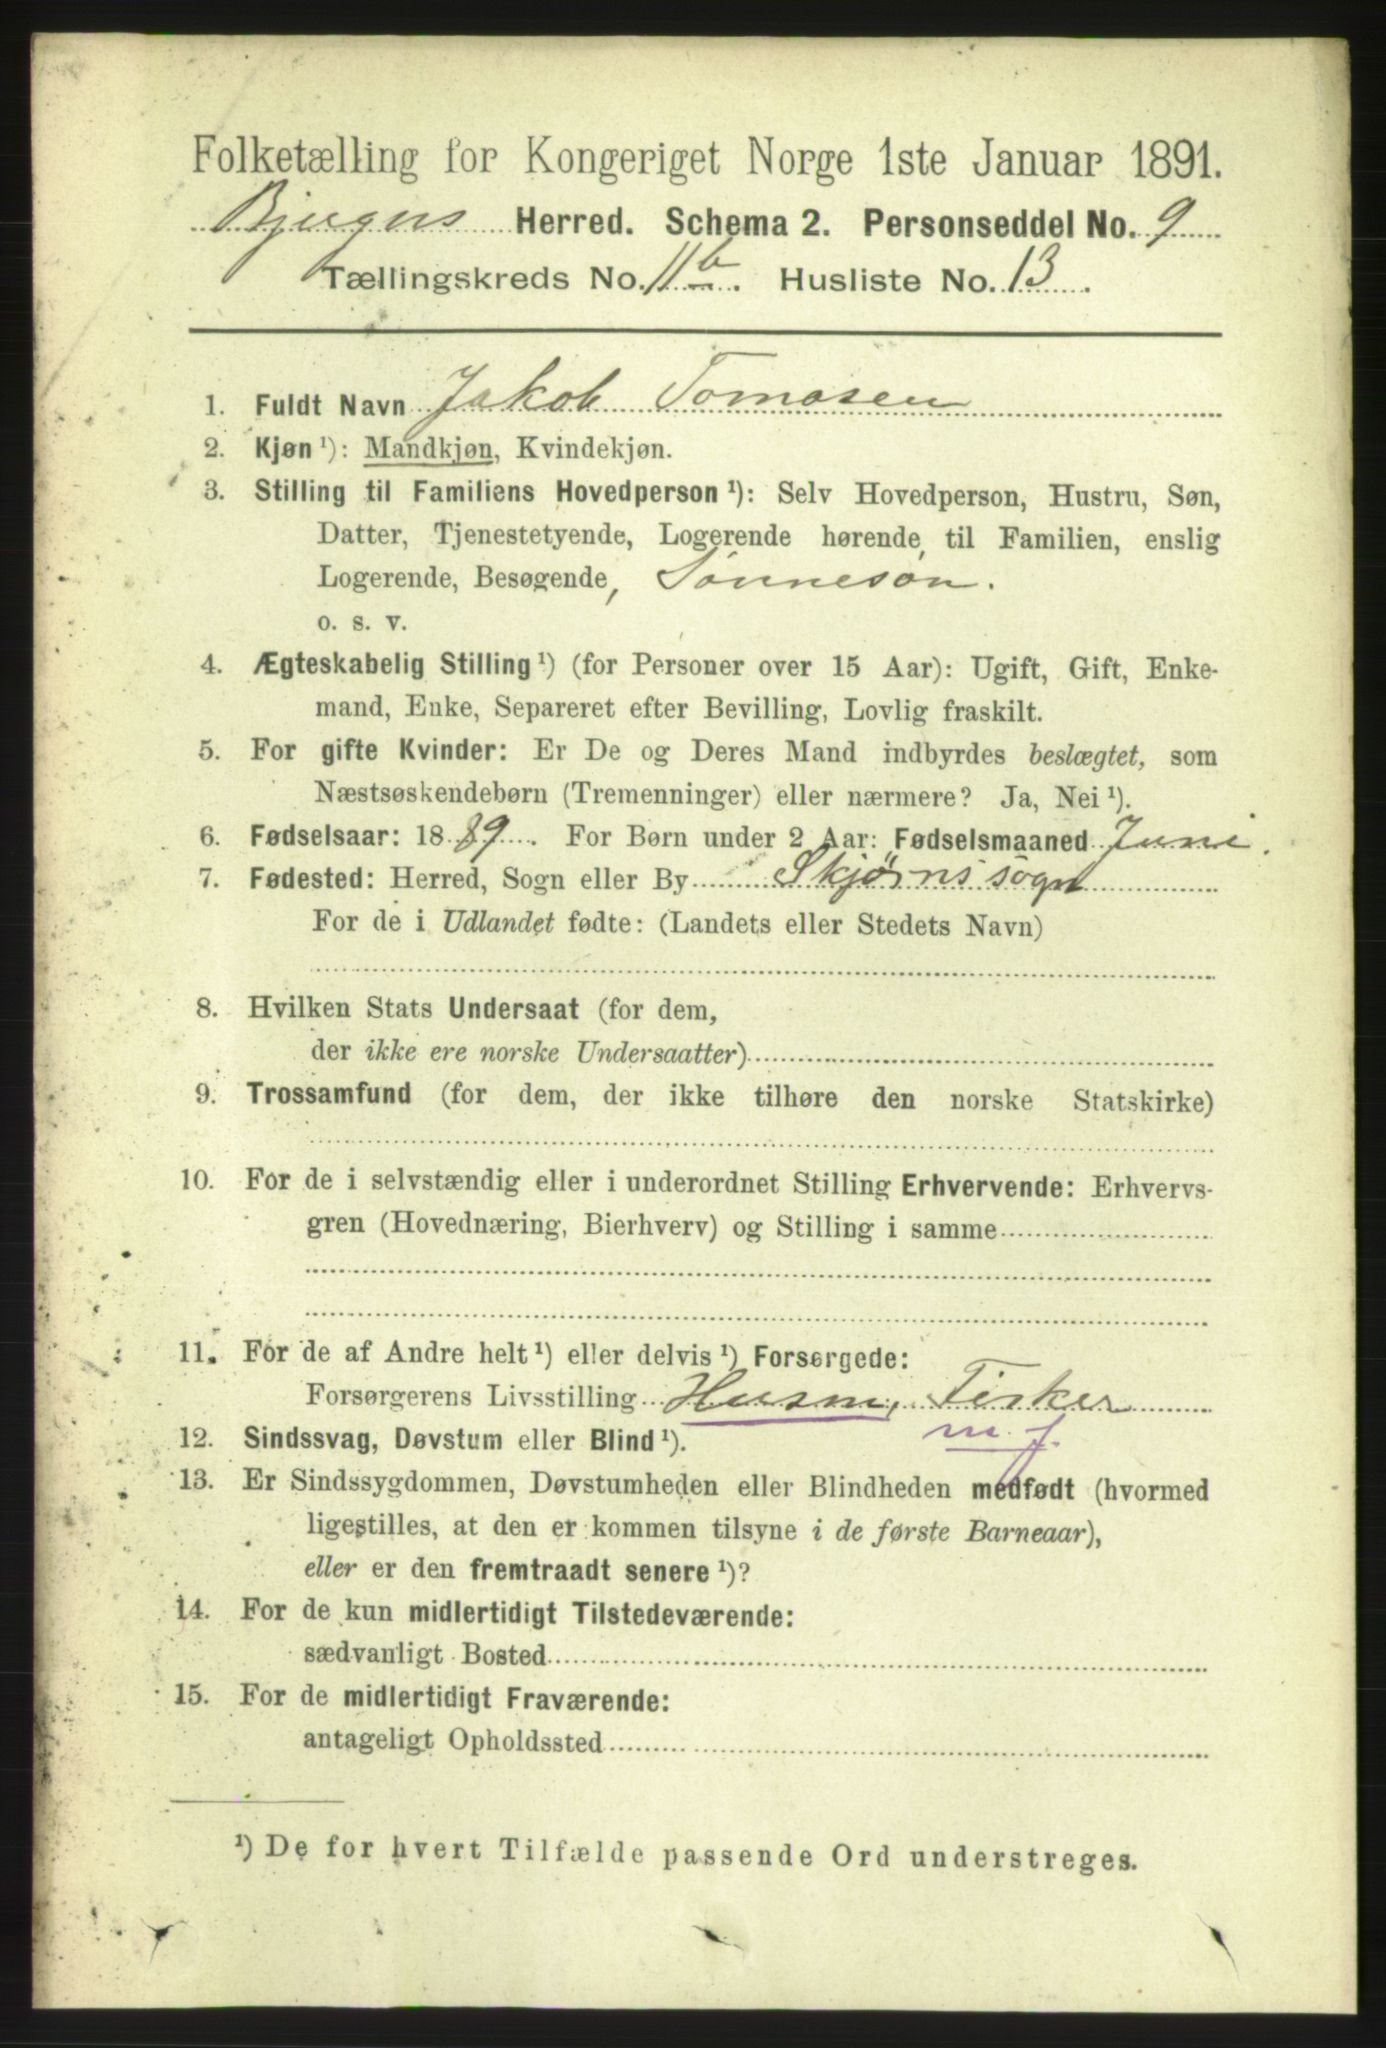 Folketælling for Kongeriget Norge 1ste Januar 1891.
Bjugns Herred. Schema 2. Personseddel No. 9
Tællingskreds No. 11 b. Husliste No. 13.
1. Fuldt Navn Jakob Tomasen
2. Kjøn ¹): Mandkjøn, Kvindekjøn.
3. Stilling til Familiens Hovedperson ¹): Selv Hovedperson, Hustru, Søn,
Datter, Tjenestetyende, Logerende hørende til Familien, enslig
Logerende, Besøgende, Sønnesøn.
o. s. v.
4. Ægteskabelig Stilling ¹) (for Personer over 15 Aar): Ugift, Gift, Enke-
mand, Enke, Separeret efter Bevilling, Lovlig fraskilt.
5. For gifte Kvinder: Er De og Deres Mand indbyrdes beslægtet, som
Næstsøskendebørn (Tremenninger) eller nærmere? Ja, Nei ¹).
6. Fødselsaar: 1889. For Børn under 2 Aar: Fødselsmaaned Juni.
7. Fødested: Herred, Sogn eller By Skjørns sogn
For de i Udlandet fødte: (Landets eller Stedets Navn)
8. Hvilken Stats Undersaat (for dem,
der ikke ere norske Undersaatter)
9. Trossamfund (for dem, der ikke tilhøre den norske Statskirke)
10. For de i selvstændig eller i underordnet Stilling Erhvervende: Erhvervs-
gren (Hovednæring, Bierhverv) og Stilling i samme
11. For de af Andre helt ¹) eller delvis ¹) Forsørgede:
Forsørgerens Livsstilling Husm, Fisker
m. f.
12. Sindssvag, Døvstum eller Blind ¹).
13. Er Sindssygdommen, Døvstumheden eller Blindheden medfødt (hvormed
ligestilles, at den er kommen tilsyne i de første Barneaar),
eller er den fremtraadt senere ¹)?
14. For de kun midlertidigt Tilstedeværende:
sædvanligt Bosted
15. For de midlertidigt Fraværende:
antageligt Opholdssted
¹) De for hvert Tilfælde passende Ord understreges.